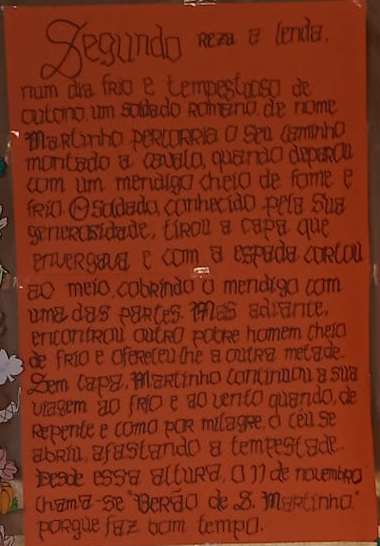 Segundo reza a lenda,
num dia frio e tempestuoso de
outono, um soldado romano, de nome
Martinho percorria o seu caminho
montado a cavalo, quando deparou
com um mendigo cheio de fome e
frio. O soldado, conhecido pela sua
generosidade, tirou a capa que
envergava e com a espada cortou
ao meio, cobrindo o mendigo com
uma das partes. Mas adiante,
encontrou outro pobre homem cheio
de frio e ofereceu-lhe a outra metade.
Sem capa, Martinho continuou a sua
viagem ao frio e ao vento quando, de
repente e como por milagre, o céu se
abriu, afastando a tempestade.
Desde essa altura, o 11 de novembro
chama-se "Verão de S. Martinho,"
porque faz bom tempo.